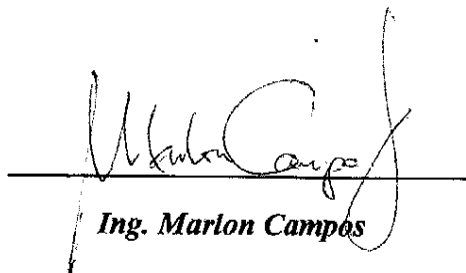 Marlon Campos
Ing. Marlon Campos